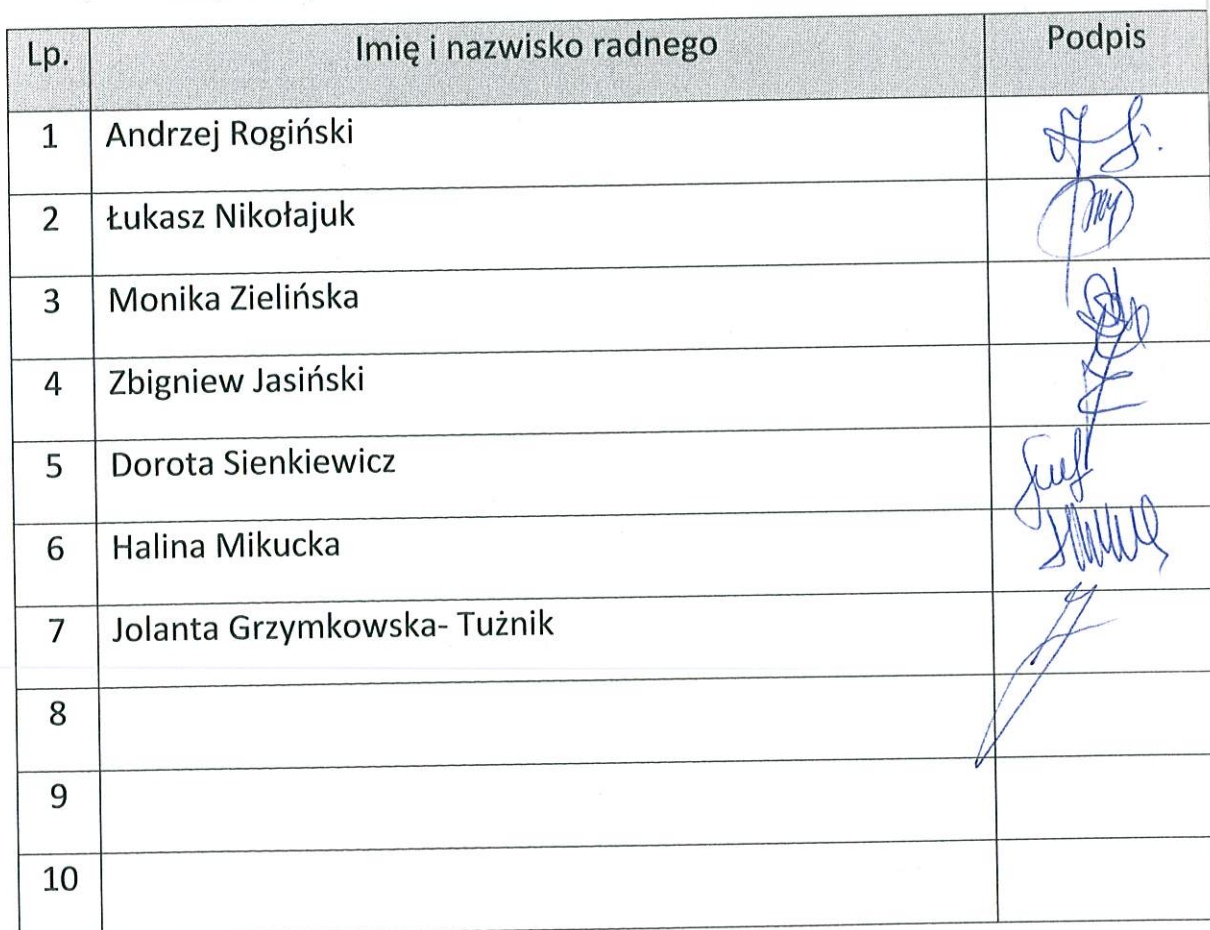 Lp. Imię i nazwisko radnego Podpis
1 Andrzej Rogiński
2 Łukasz Nikołajuk
3 Monika Zielińska
4 Zbigniew Jasiński
5 Dorota Sienkiewicz
6 Halina Mikucka
7 Jolanta Grzymkowska- Tużnik
8
9
10